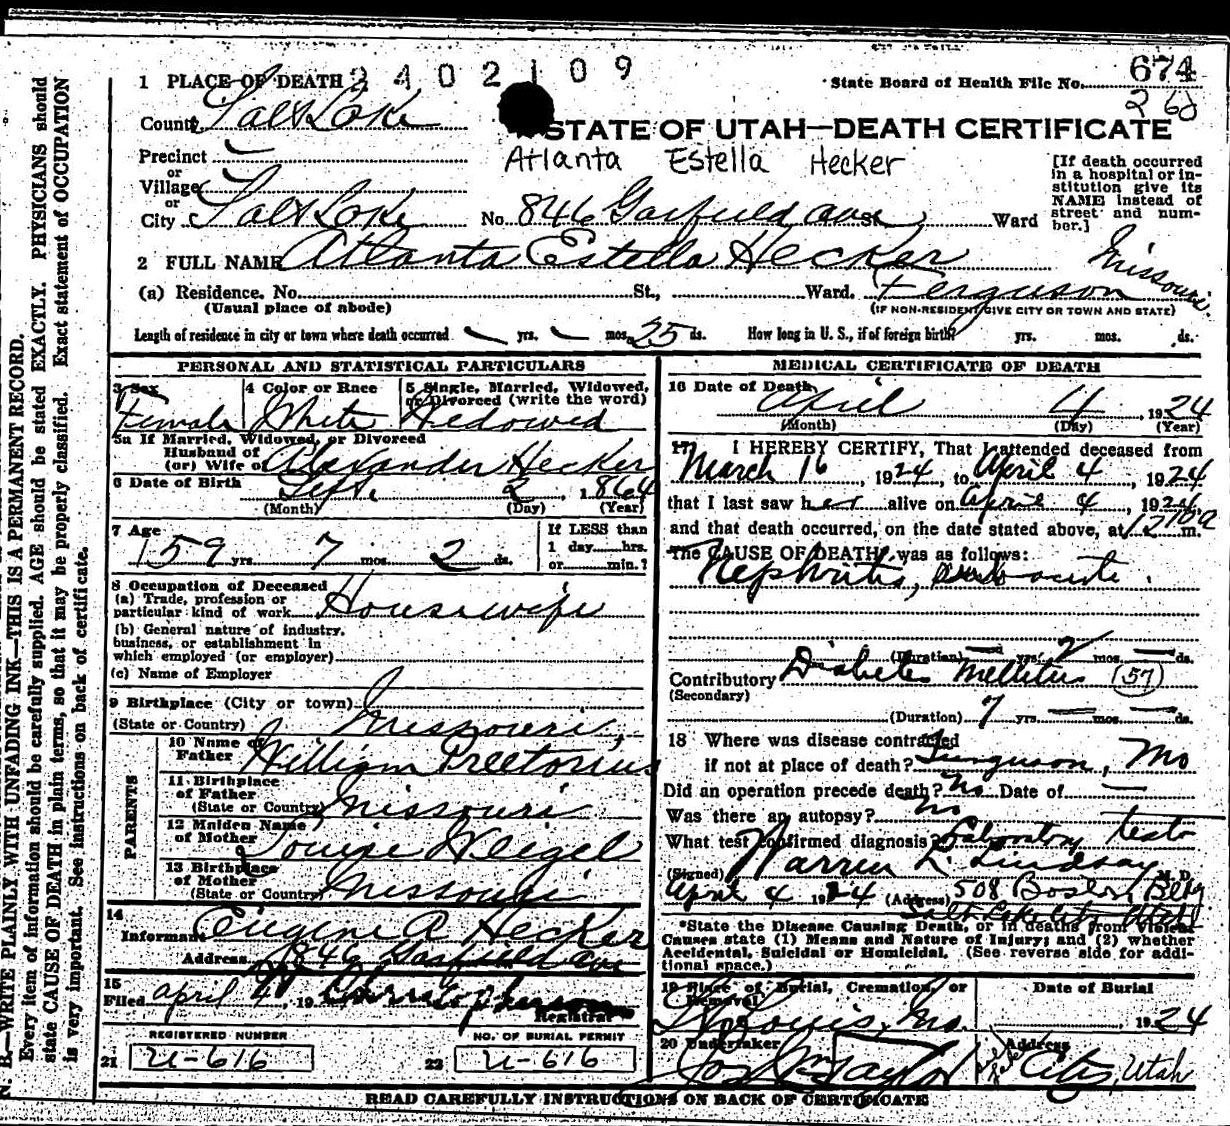 2402109
State Board of Health File No. 674
260
1 PLACE OF DEATH
County Salt Lake
STATE OF UTAH—DEATH CERTIFICATE
Atlanta Estella Hecker
Precinct
or
Village
or
City Salt Lake No. 846 Garfield ave St. Ward
[If death occurred
in a hospital or in-
stitution give its
NAME instead of
street and num-
ber.]
2 FULL NAME Atlanta Estella Hecker
(a) Residence. No. St., Ward. Ferguson Missouri.
(Usual place of abode) (IF NON-RESIDENT GIVE CITY OR TOWN AND STATE)
Length of residence in city or town where death occurred yrs. mos. 25 ds. How long in U. S., if of foreign birth? yrs. mos. ds.
PERSONAL AND STATISTICAL PARTICULARS
3 Sex 4 Color or Race 5 Single, Married, Widowed,
or Divorced (write the word)
Female White Widowed
5a If Married, Widowed, or Divorced
Husband of
(or) Wife of Alexander Hecker
6 Date of Birth Sept. 2, 1864
(Month) (Day) (Year)
7 Age 59 yrs. 7 mos. 2 ds.
If LESS than
1 day......hrs.
or......min.?
8 Occupation of Deceased
(a) Trade, profession or
particular kind of work Housewife
(b) General nature of industry,
business, or establishment in
which employed (or employer)
(c) Name of Employer
9 Birthplace (City or town)
(State or Country) Missouri
PARENTS
10 Name of
Father William Preetorius
11 Birthplace
of Father
(State or Country) Missouri
12 Maiden Name
of Mother Louise Weigel
13 Birthplace
of Mother
(State or Country) Missouri
14
Informant Eugene A Hecker
Address 846 Garfield ave
15
Filed april 4, 19 Christopherson
Registrar
REGISTERED NUMBER NO. OF BURIAL PERMIT
21 U-616 22 U-616
MEDICAL CERTIFICATE OF DEATH
16 Date of Death April 4, 1924
(Month) (Day) (Year)
17 I HEREBY CERTIFY, That I attended deceased from
March 16, 1924, to April 4, 1924
that I last saw her alive on April 4, 1924,
and that death occurred, on the date stated above, at 12 10a m.
The CAUSE OF DEATH was as follows:
Nephritis, sub acute.
(Duration) yrs. 2 mos. ds.
Contributory Diabetes Mellitus (57)
(Secondary)
(Duration) 7 yrs. mos. ds.
18 Where was disease contracted
if not at place of death? Furguson, Mo
Did an operation precede death? No Date of
Was there an autopsy? No
What test confirmed diagnosis? Laboratory tests
(Signed) Warren L. Lindsay M. D.
April 4 1924 (Address) 508 Boston Bldg
Salt Lake City Utah
*State the Disease Causing Death, or in deaths from Violent
Causes state (1) Means and Nature of Injury; and (2) whether
Accidental, Suicidal or Homicidal. (See reverse side for addi-
tional space.)
19 Place of Burial, Cremation, or
Removal Date of Burial
St Louis, Mo. 1924
20 Undertaker Address
Jos Wm Taylor City, Utah
READ CAREFULLY INSTRUCTIONS ON BACK OF CERTIFICATE
N. B.—WRITE PLAINLY WITH UNFADING INK—THIS IS A PERMANENT RECORD.
Every item of information should be carefully supplied. AGE should be stated EXACTLY. PHYSICIANS should
state CAUSE OF DEATH in plain terms, so that it may be properly classified. Exact statement of OCCUPATION
is very important. See instructions on back of certificate.